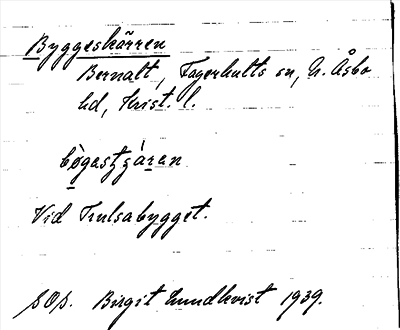 Byggeskärren
Bernalt, Fagerhults sn, N. Åsbo
hd, Krist. l.
Vid Trulsabygget.
SOp. Birgit Lundkvist 1939.